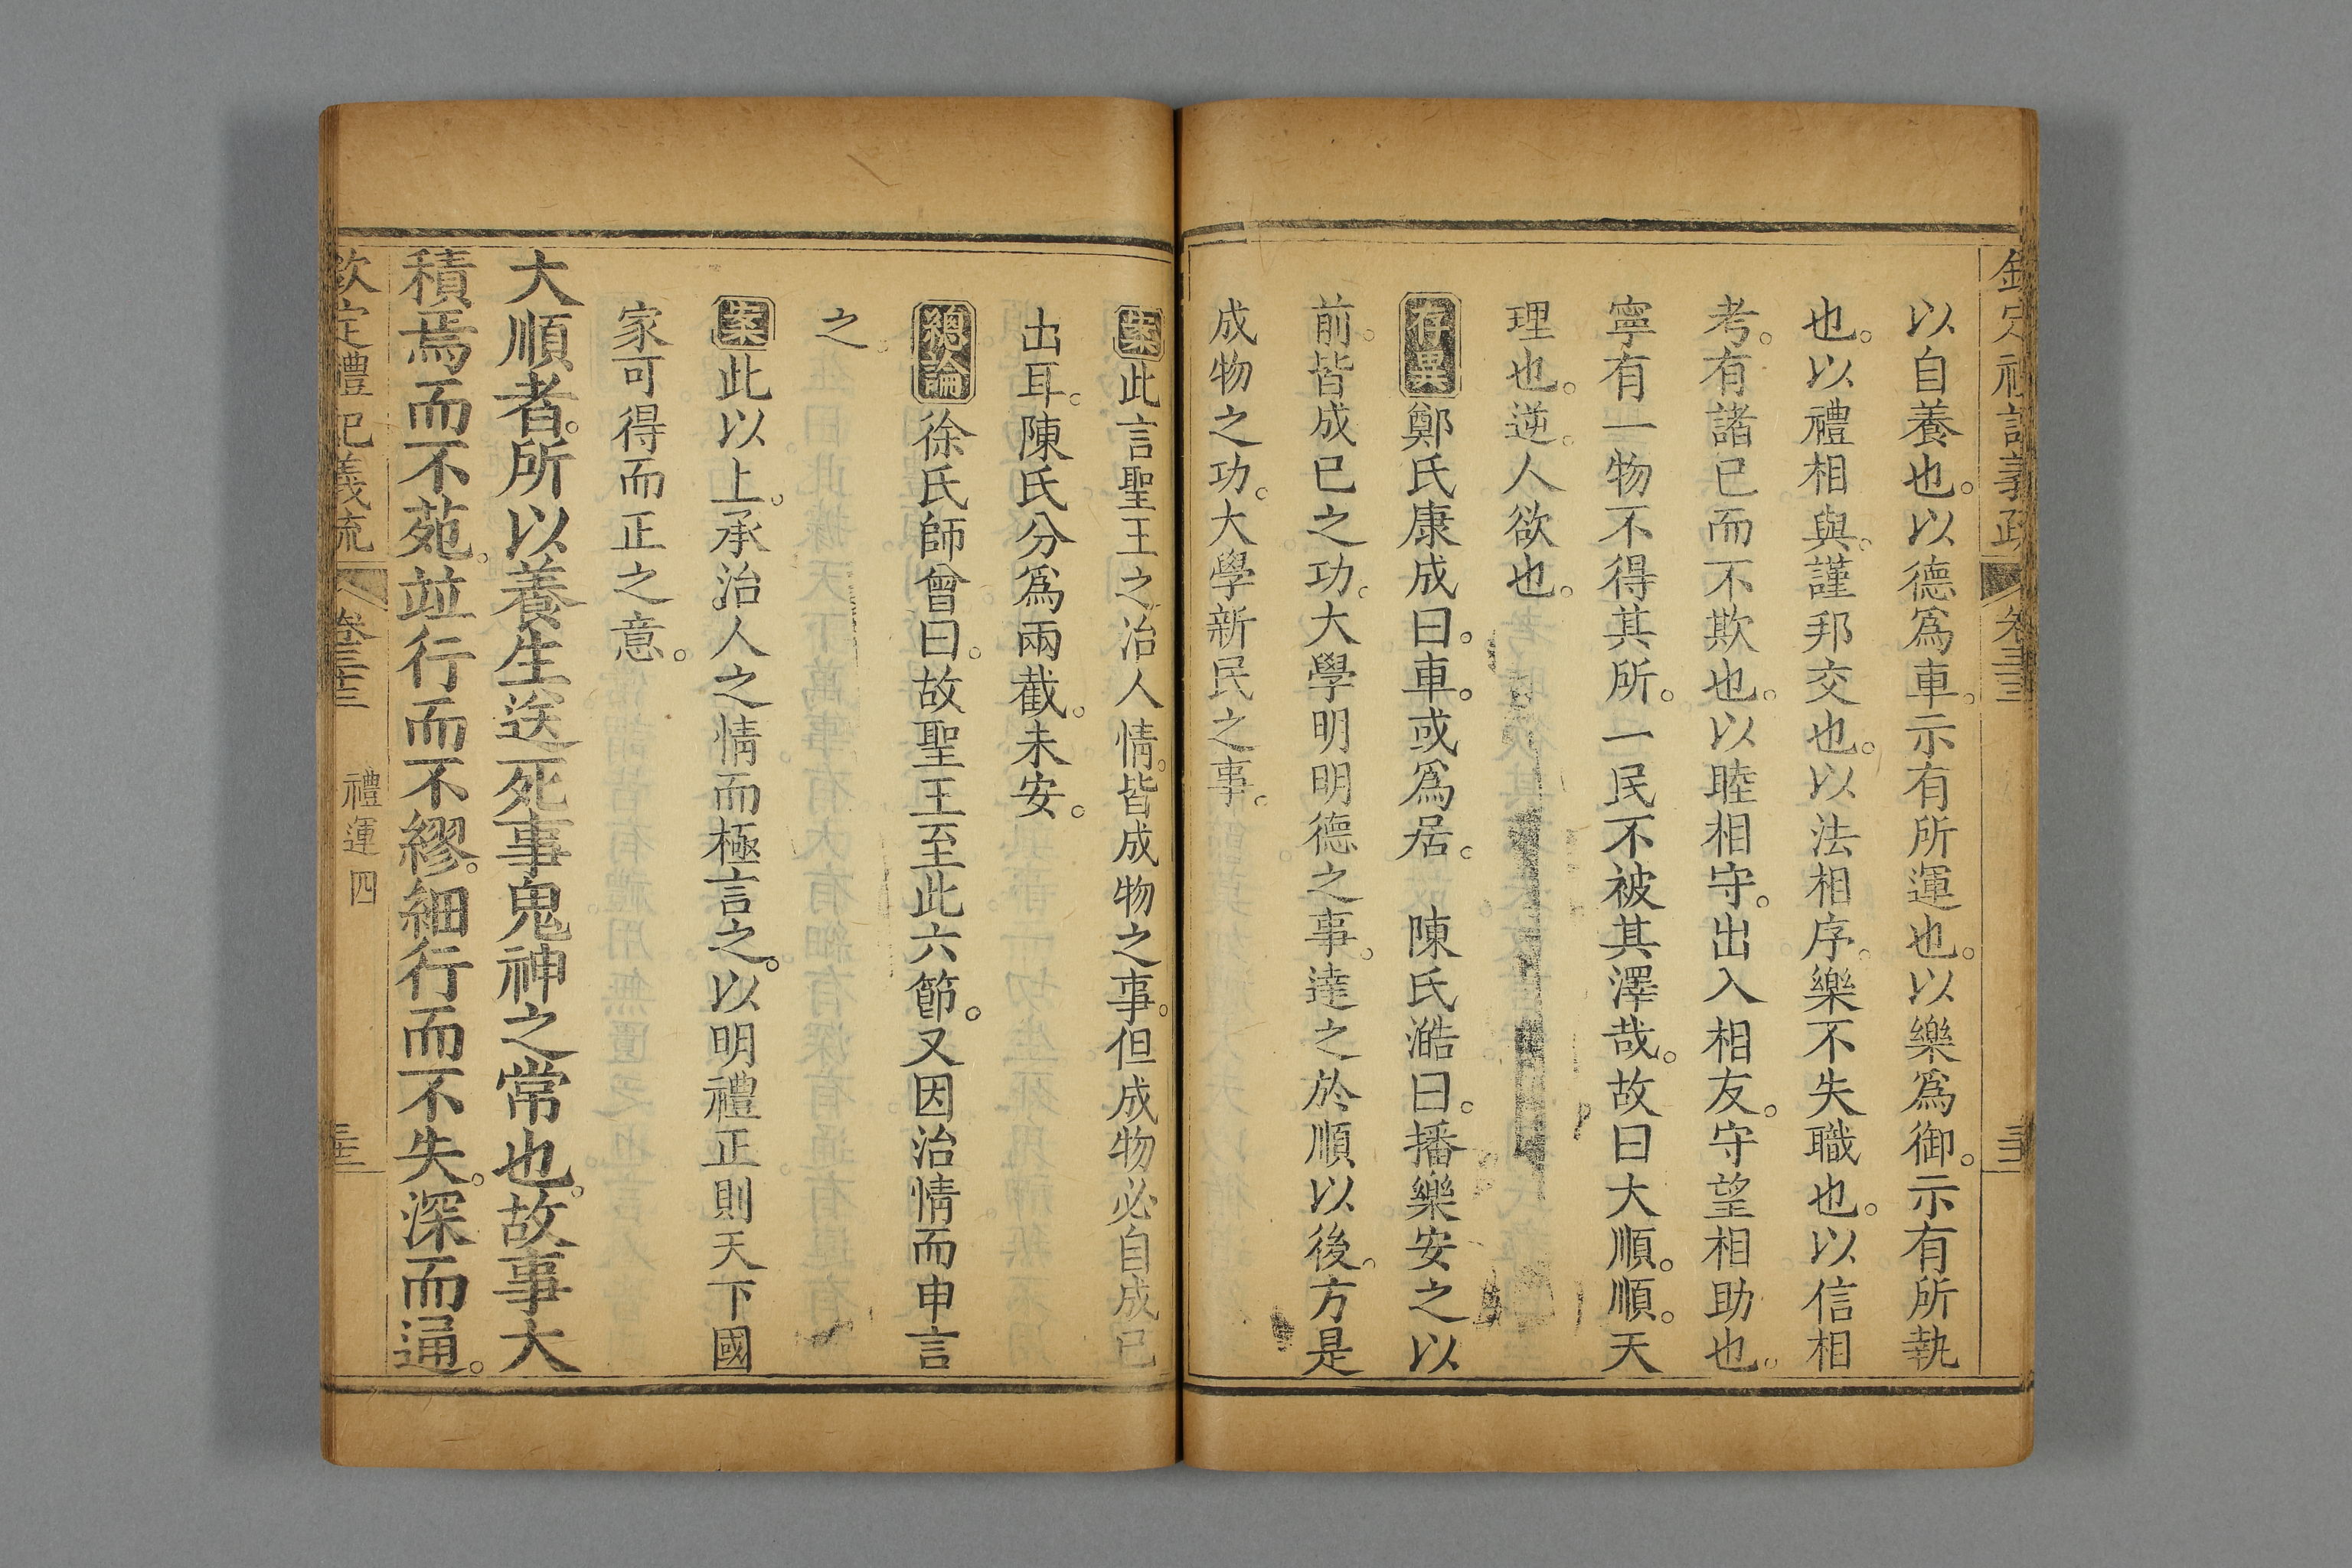 欽定禮記義疏 卷三十三
以自養也。以德爲車。示有所運也。以樂爲御。示有所執
也。以禮相與。謹邦交也。以法相序。樂不失職也。以信相
考。有諸已而不欺也。以睦相守。出入相友。守望相助也。
寧有一物不得其所。一民不被其澤哉。故曰大順。順。天
理也。逆。人欲也。
存異鄭氏康成曰。車。或爲居。 陳氏澔曰。播樂安之以
前。皆成已之功。大學明明德之事。達之於順以後。方是
成物之功。大學新民之事。
案此言聖王之治人情。皆成物之事。但成物必自成已
出耳。陳氏分爲兩截。未安。
總論徐氏師曾曰。故聖王至此六節。又因治情而申言
之。
案此以上。承治人之情而極言之。以明禮正則天下國
家可得而正之意。
大順者。所以養生送死事鬼神之常也。故事大
積焉而不苑。竝行而不繆。細行而不失。深而通。
欽定禮記義疏 卷三十三 禮運四